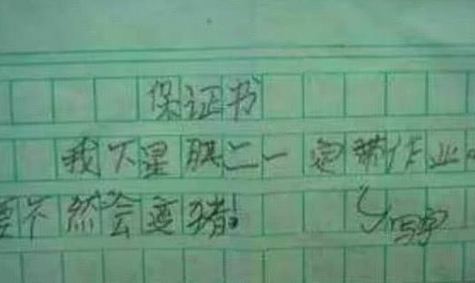 保证书
我下星期二一定带作业
要不然会变猪!